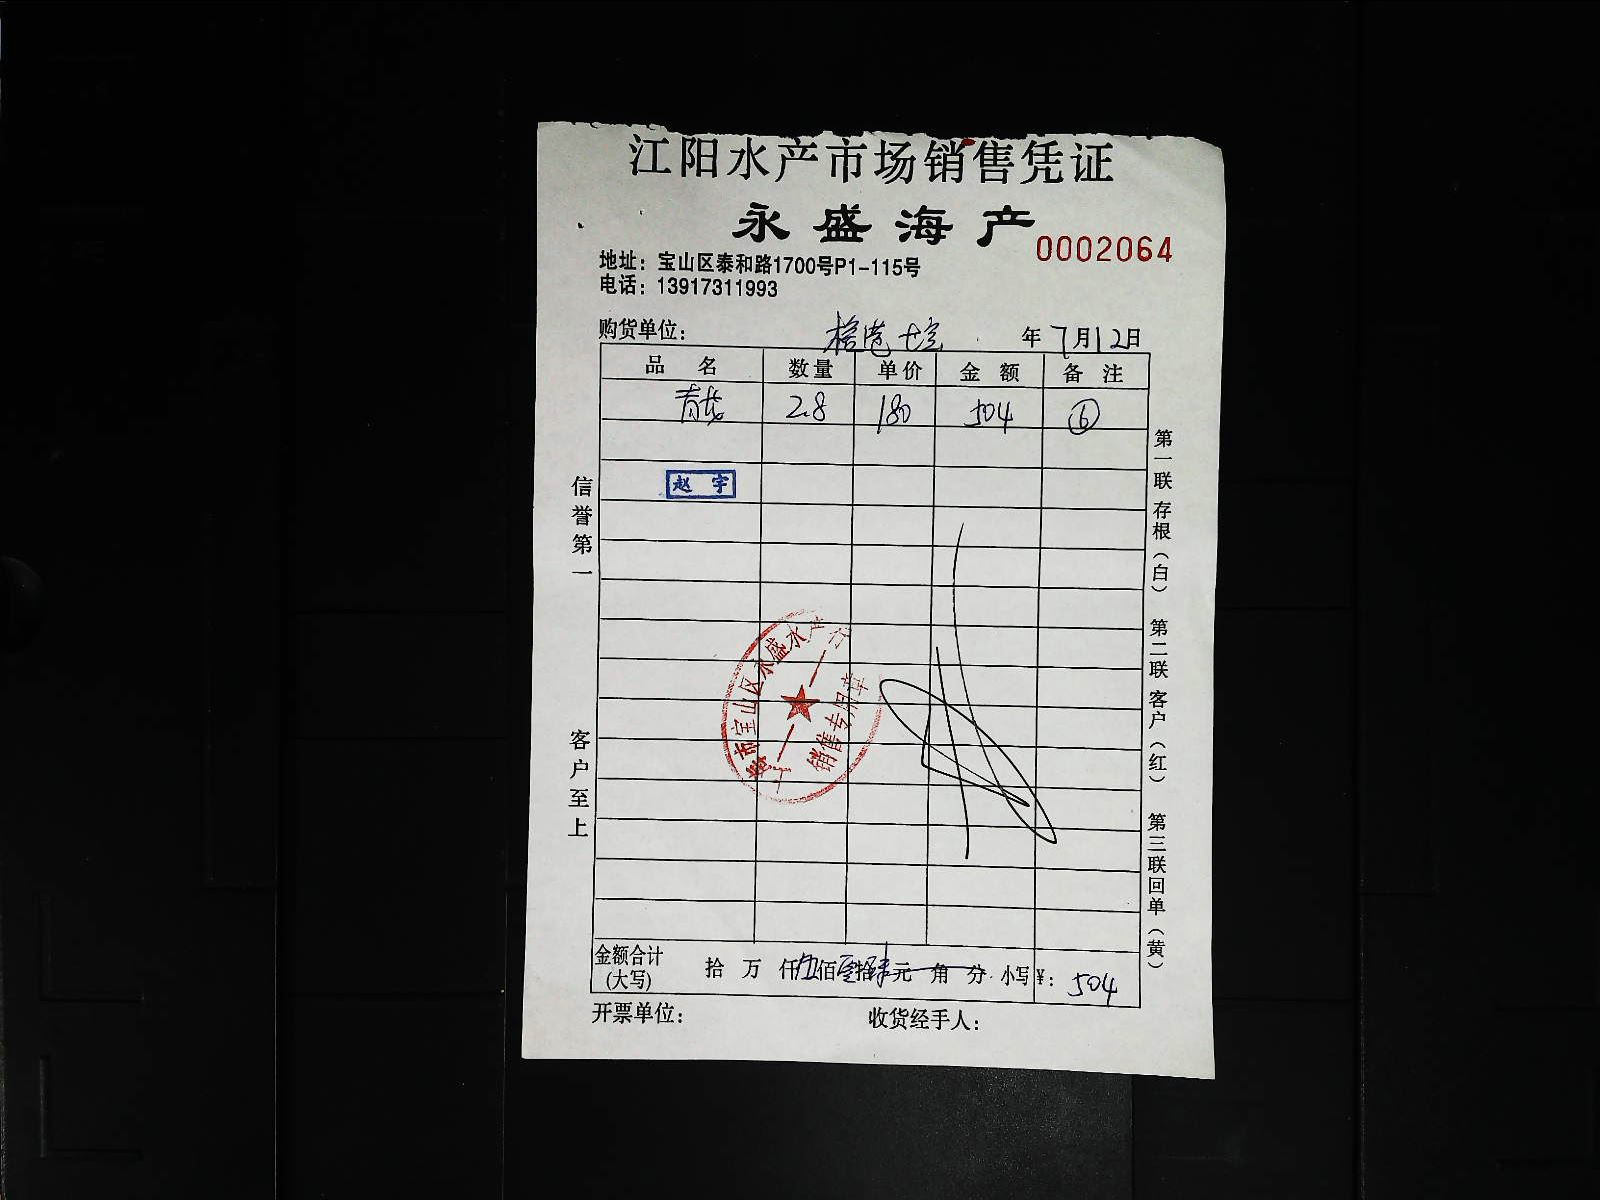 江阳水产市场销售凭证
永盛海产
0002064
地址：宝山区泰和路1700号P1-115号
电话：13917311993
购货单位： 年7月12日
品名 数量 单价 金额 备注
2.8 180 504 ⑥
赵宇
信誉第一
客户至上
第一联 存根（白） 第二联 客户（红） 第三联 回单（黄）
上海市宝山区永盛水产行
销售专用章
金额合计（大写） 拾 万 仟伍佰零拾肆元 角 分 小写¥：504
开票单位： 收货经手人：